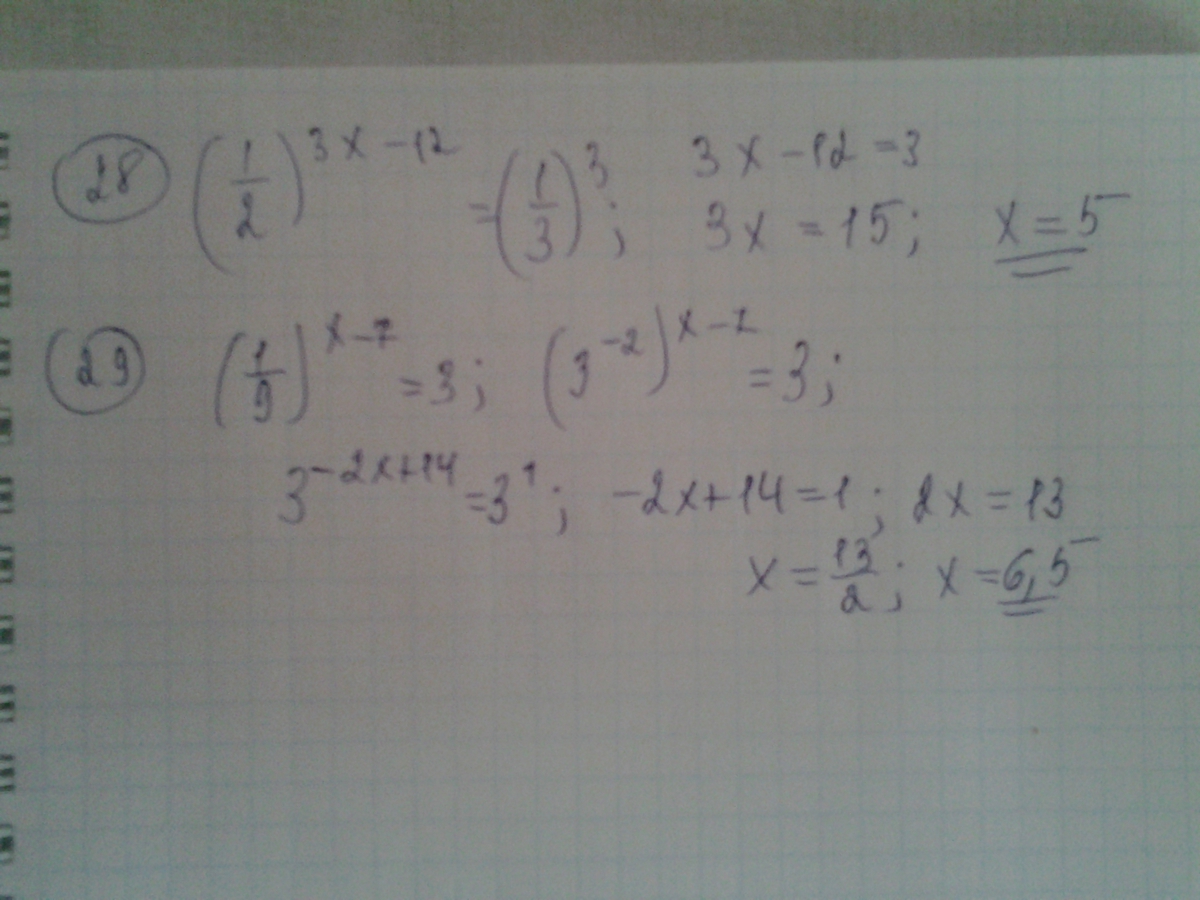 28 (1/2)^(3x-12) = (1/3)^3; 3x-12=3
3x = 15; x=5
29 (1/9)^(x-7) = 3; (3^(-2))^(x-7) = 3;
3^(-2x+14) = 3^1; -2x+14=1; 2x=13
x=13/2; x=6,5